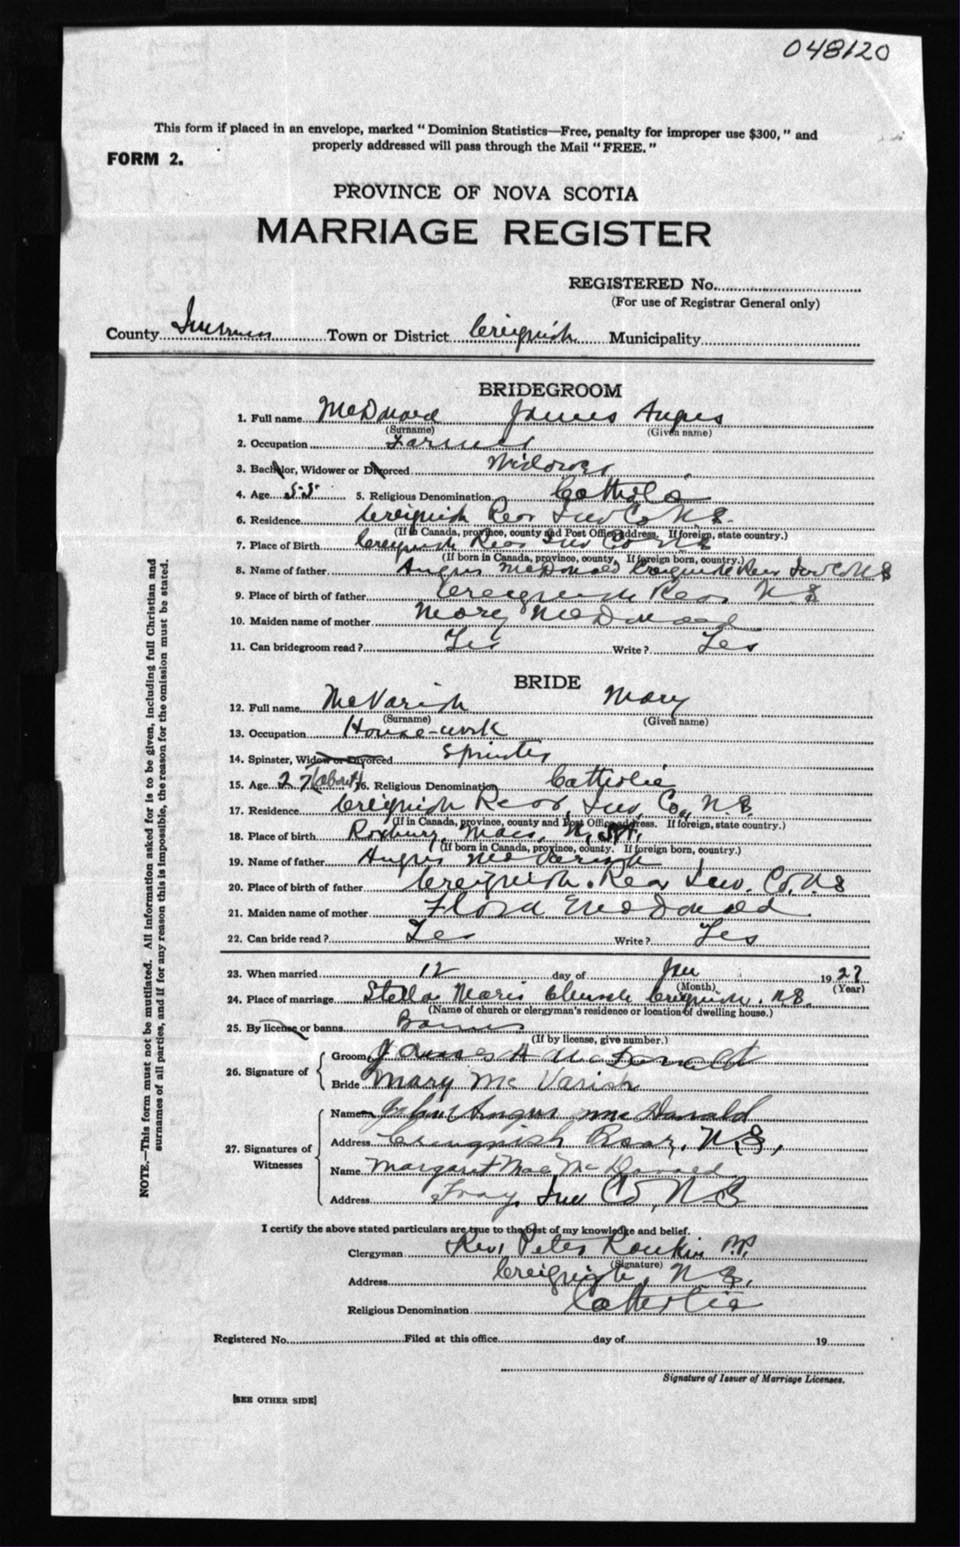 048120
This form if placed in an envelope, marked "Dominion Statistics—Free, penalty for improper use $300," and
properly addressed will pass through the Mail "FREE."
FORM 2.
PROVINCE OF NOVA SCOTIA
MARRIAGE REGISTER
REGISTERED No.
(For use of Registrar General only)
County Inverness Town or District Creignish Municipality
BRIDEGROOM
1. Full name McDonald James Angus
(Surname) (Given name)
2. Occupation Farmer
3. Bachelor, Widower or Divorced Widower
4. Age 55 5. Religious Denomination Catholic
6. Residence Creignish Rear Inv Co N.S.
(If in Canada, province, county and Post Office address. If foreign, state country.)
7. Place of Birth Creignish Rear Inv Co N.S
(If born in Canada, province, county. If foreign born, country.)
8. Name of father Angus McDonald Creignish Rear Inv Co N S
9. Place of birth of father Creignish Rear N.S
10. Maiden name of mother Mary McDonald
11. Can bridegroom read? Yes Write? Yes
BRIDE
12. Full name McVarish Mary
(Surname) (Given name)
13. Occupation House-work
14. Spinster, Widow or Divorced Spinster
15. Age 27 (about) 16. Religious Denomination Catholic
17. Residence Creignish Rear, Inv, Co, N.S.
(If in Canada, province, county and Post Office address. If foreign, state country.)
18. Place of birth Roxbury, Mass,
(If born in Canada, province, county. If foreign born, country.)
19. Name of father Angus McVarish
20. Place of birth of father Creignish. Rear Inv. Co. N S
21. Maiden name of mother Flora McDonald
22. Can bride read? Yes Write? Yes
23. When married 12 day of Jan 1927
(Month) (Year)
24. Place of marriage Stella Maris Church Creignish. N.S.
(Name of church or clergyman's residence or location of dwelling house.)
25. By license or banns Banns
(If by license, give number.)
26. Signature of
Groom James A McDonald
Bride Mary McVarish
27. Signatures of
Witnesses
Name John Angus McDonald
Address Creignish Rear, N.S,
Name Margaret Mae McDonald
Address Inv Co, N S
I certify the above stated particulars are true to the best of my knowledge and belief.
Clergyman Rev, Peter Rankin P.P.
(Signature)
Address Creignish, N.S.
Religious Denomination Catholic
Registered No. Filed at this office day of 19
Signature of Issuer of Marriage Licenses.
[SEE OTHER SIDE]
NOTE.—This form must not be mutilated. All information asked for is to be given, including full Christian and
surnames of all parties, and if for any reason this is impossible, the reason for the omission must be stated.